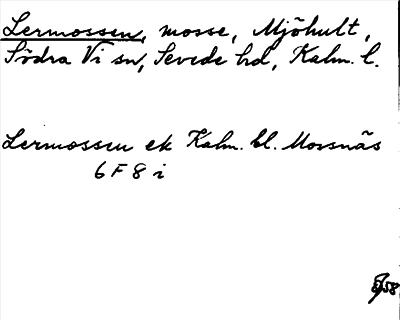 Lermossen, mosse, Mjöhult,
Södra Vi sn, Sevede hd, Kalm. l.
Lermossen ek Kalm. bl. Morsnäs
6 F 8 i